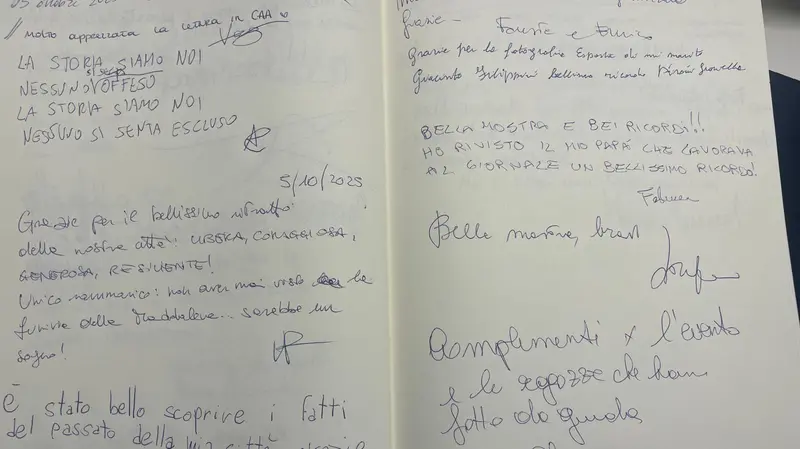 05 ottobre 2025
// Molto apprezzata la lettura in CAA
LA STORIA SIAMO NOI
NESSUNO SI SENTA OFFESO
LA STORIA SIAMO NOI
NESSUNO SI SENTA ESCLUSO
5/10/2025
Grazie per il bellissimo ritratto
della nostra città: LIBERA, CORAGGIOSA,
GENEROSA, RESILIENTE!
Unico rammarico: non aver mai visto la
funivia della Maddalena... sarebbe un
sogno!
È stato bello scoprire i fatti
del passato della mia città
Grazie -
Fausta e Enrico
Grazie per le fotografie Esposte di mio marito
Giacinto bellissimo ricordo
BELLA MOSTRA E BEI RICORDI!!
HO RIVISTO IL MIO PAPÁ CHE LAVORAVA
AL GIORNALE UN BELLISSIMO RICORDO!
Bella mostra, bravi
Complimenti x l'evento
e le ragazze che han
fatto da guida